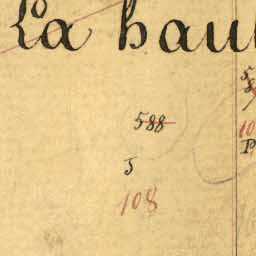 La hau
588
5
108
10
P